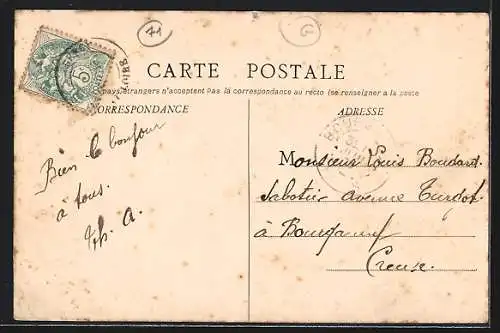 71
G
5
CARTE POSTALE
pays étrangers n'acceptent pas la correspondance au recto (se renseigner a la poste
CORRESPONDANCE
ADRESSE
Bien le bonjour
à tous.
Th. A.
Monsieur Louis Boudard
Sabotier avenue Turgot
à Bourganeuf
Creuse.